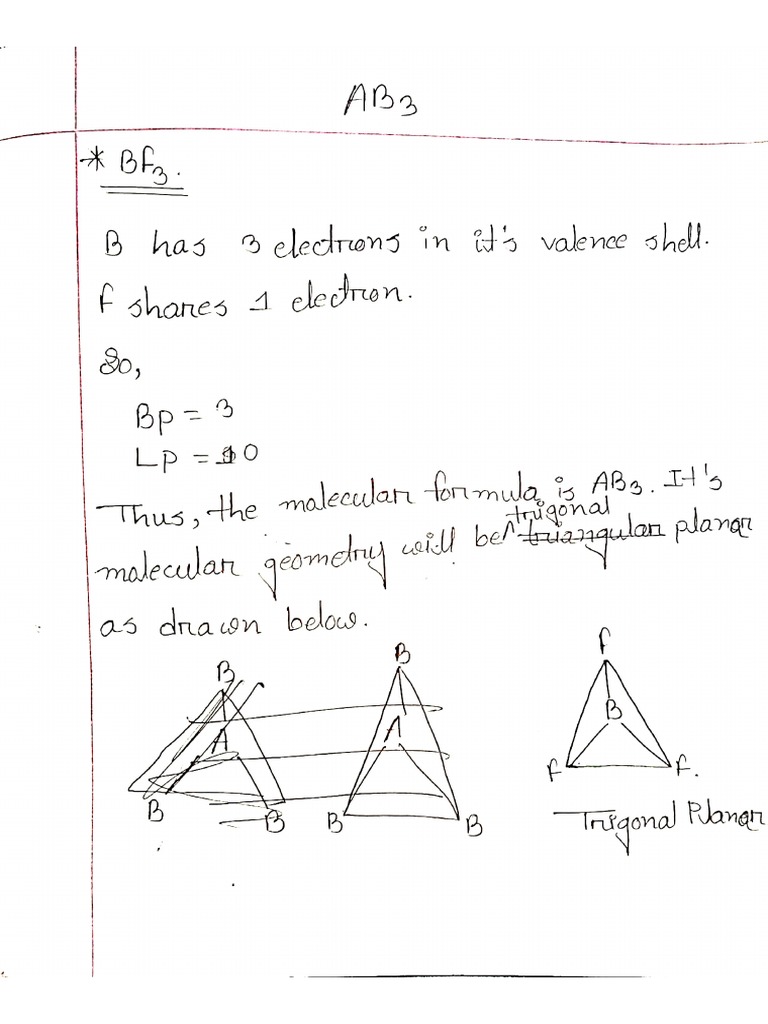 AB3
* Bf3.
B has 3 electrons in it's valence shell.
f shares 1 electron.
So,
Bp = 3
Lp = 0
Thus, the molecular formula is AB3. It's
molecular geometry will be trigonal planar
as drawn below.
B
A
B B
B
A
B B
f
B
f f.
Trigonal Planar